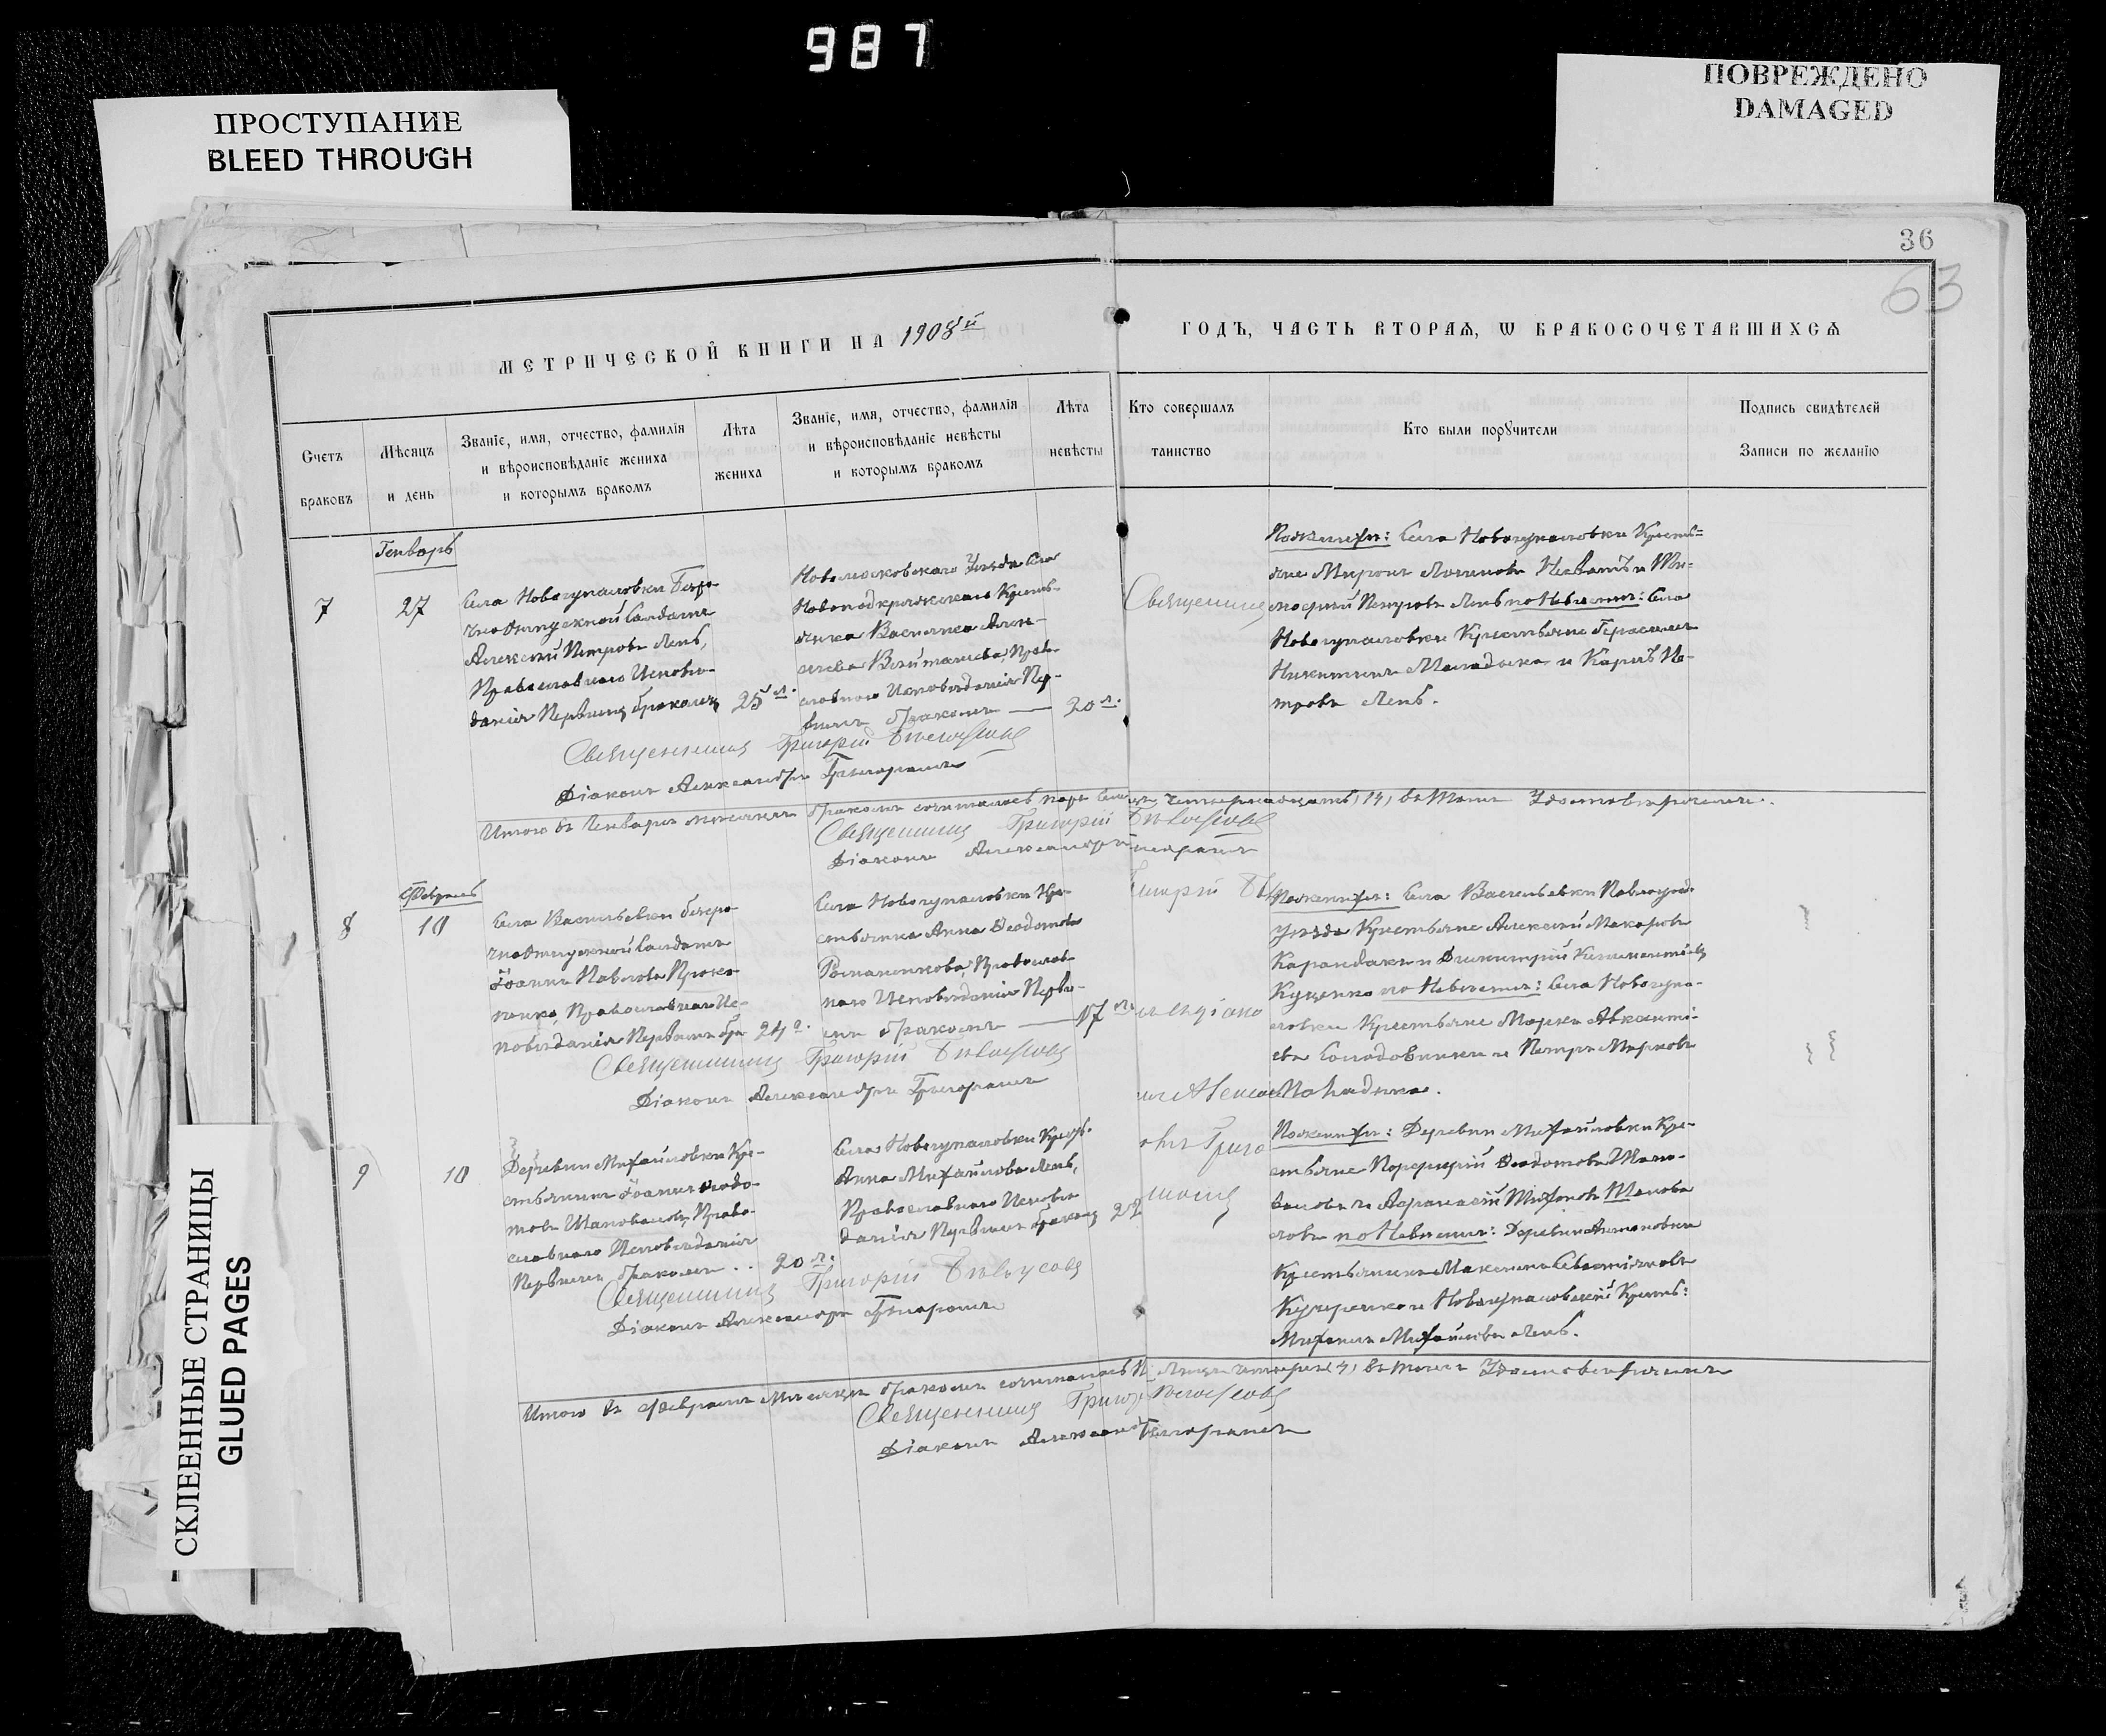 987
ПРОСТУПАНИЕ
BLEED THROUGH
ПОВРЕЖДЕНО
DAMAGED
36
63
МЕТРИЧЕСКОЙ КНИГИ НА 1908й
ГОДЪ, ЧАСТЬ ВТОРАЯ, Ѡ БРАКОСОЧЕТАВШИХСЯ
Счетъ
браковъ
Мѣсяцъ
и день
Званіе, имя, отчество, фамилія
и вѣроисповѣданіе жениха
и которымъ бракомъ
Лѣта
жениха
Званіе, имя, отчество, фамилія
и вѣроисповѣданіе невѣсты
и которымъ бракомъ
Лѣта
невѣсты
Кто совершалъ
таинство
Кто были поручители
Подпись свидѣтелей
Записи по желанію
Генварь
7
27
Села Новогупаловки Безсро-
чноотпускной Солдатъ
Алексѣй Петровъ Лень,
Православнаго Исповѣ-
данія Первымъ бракомъ
25 л.
Новомосковскаго Уѣзда Села
Новоподкряжскаго Кресть-
янка Василиса Алек-
сѣева Православ-
славнаго Исповѣданія Пер-
вымъ бракомъ
20 л.
Священникъ
По женихѣ: Села Новогупаловки Кресть=
яне Миронъ и Ти-
мофей Петровъ Лень по Невѣстѣ: Села
Новогупаловки Крестьяне Герасимъ
Никитинъ и Карпъ Пе-
тровъ Лень.
Священникъ Григорій Бѣлоусовъ
Діаконъ Александръ Григоровичъ
Итого въ Генварѣ мѣсяцѣ бракомъ сочеталось паръ семь, лицъ четырнадцать (14) въ томъ Удостовѣряемъ.
Священникъ Григорій Бѣлоусовъ
Діаконъ Александръ
Февраль
8
10
Села Васильевки безсро-
чноотпускной Солдатъ
Іоаннъ Павловъ Проко-
пенко, Православнаго Ис-
повѣданія Первымъ бра
24 г.
Села Новогупаловки Кре-
стьянка Анна Ѳеодотова
Романенкова, Православ-
наго Исповѣданія Первы-
мъ бракомъ
17 л.
По женихѣ: Села Васильевки Павлоград.
уѣзда Крестьяне Алексѣй Макаровъ
Карандакъ и Димитрій
Куценко по Невѣстѣ: Села Новогупа-
ловки Крестьяне Марко
Солодовникъ и Петръ Марковъ
Священникъ Григорій Бѣлоусовъ
Діаконъ Александръ Григоровичъ
9
10
Деревни Михайловки Кре-
стьянинъ Іоаннъ Ѳеодо-
товъ Шаповаловъ, Право-
славнаго Исповѣданія
Первымъ бракомъ
20 л.
Села Новогупаловки Крест.
Анна Михайлова Лень,
Православнаго Исповѣ-
данія Первымъ бракомъ
22
По женихѣ: Деревни Михайловки Кре-
стьяне Порфирій Ѳеодотовъ Шапо-
валовъ и Афанасій Тихоновъ Шапова-
ловъ по Невѣстѣ: Деревни Антоновки
Крестьянинъ Максимъ
Кучеренко и Новогупаловскій Крест:
Михаилъ Михайловъ Лень.
Священникъ Григорій Бѣлоусовъ
Діаконъ Александръ Григоровичъ
Итого въ Февралѣ Мѣсяцѣ бракомъ сочеталось Удостовѣряемъ
Священникъ Григорій Бѣлоусовъ
Діаконъ Александръ Григоровичъ
СКЛЕЕННЫЕ СТРАНИЦЫ
GLUED PAGES